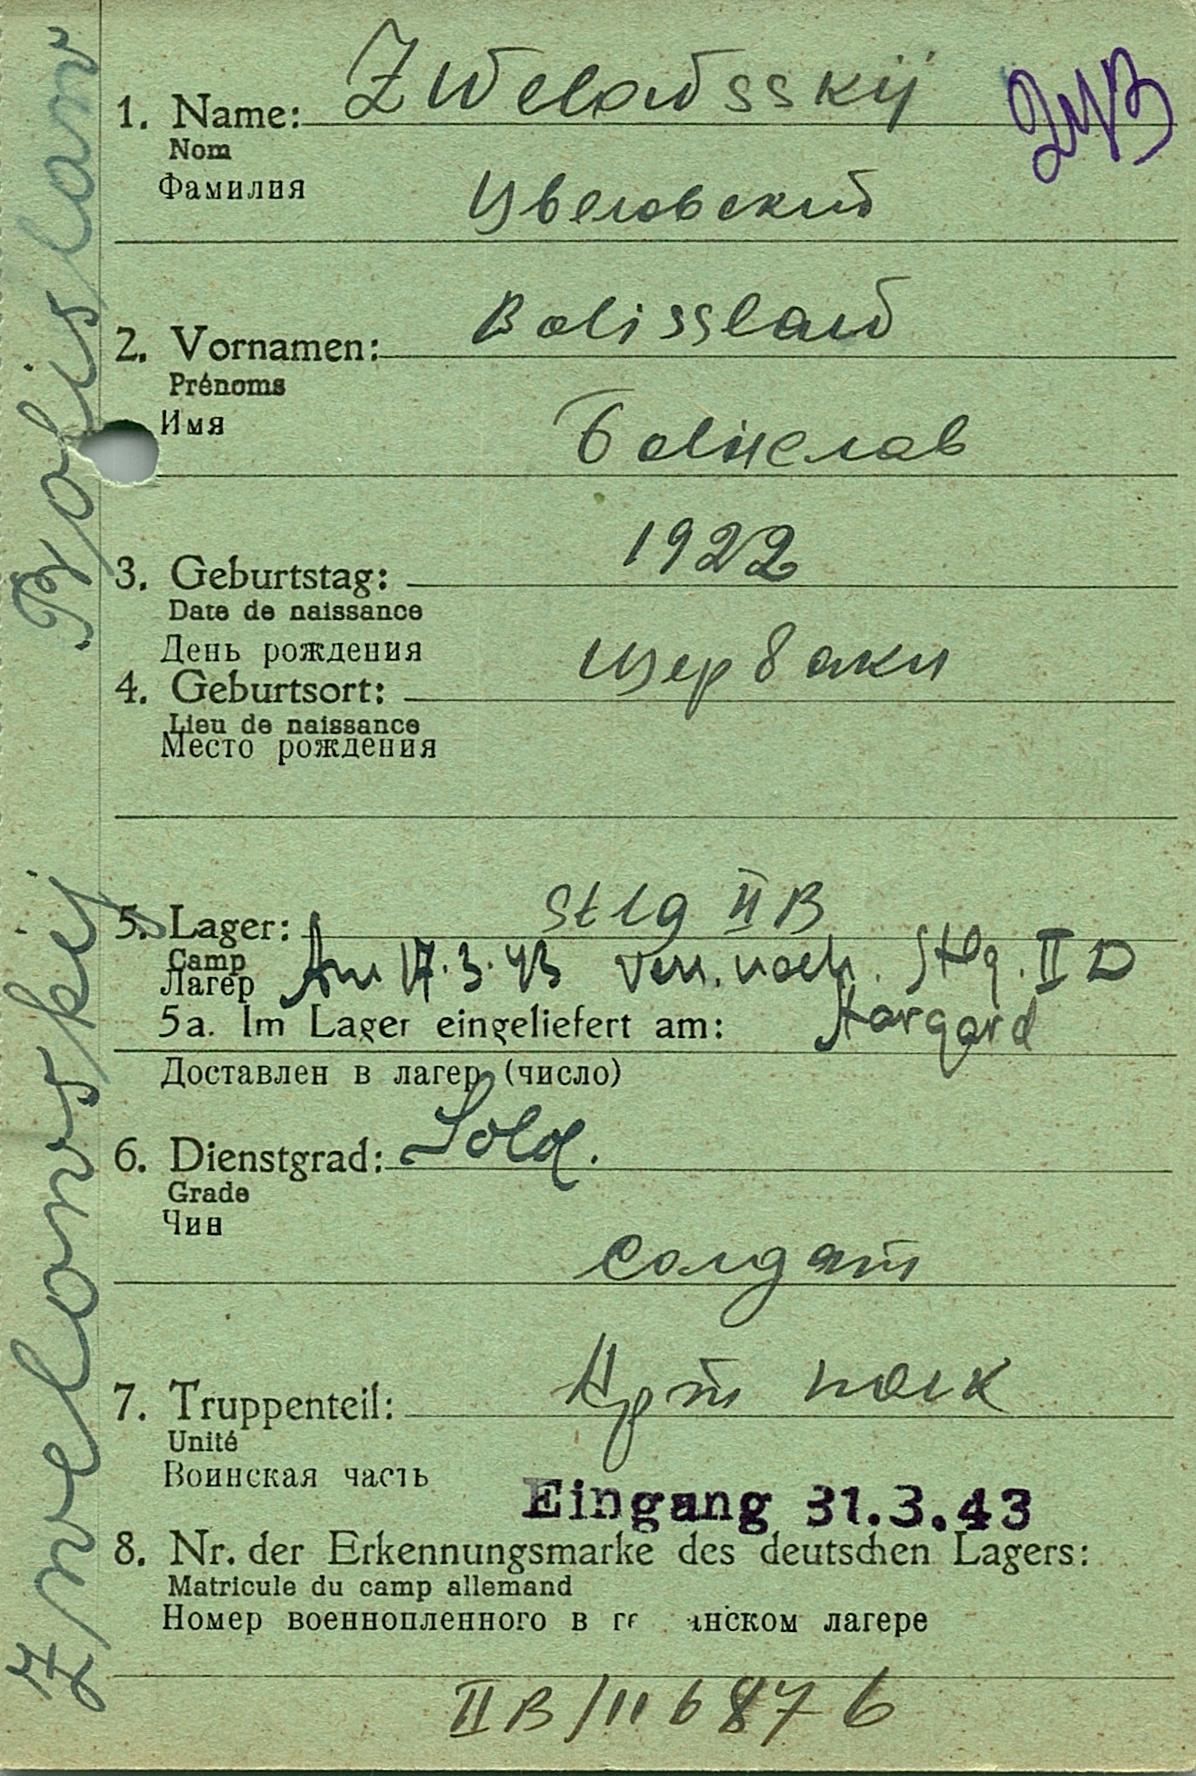 1. Name: Zwelowsskij
Nom
Фамилия
Цвеловский
2. Vornamen: Bolisslaw
Prénoms
Имя
Болислав
3. Geburtstag: 1922
Date de naissance
День рождения
4. Geburtsort: Щербаки
Lieu de naissance
Место рождения
5. Lager: Stlg II B
Camp
Лагер
Am 17.3.43 vers. nach. Stlg. II D
Stargard
5a. Im Lager eingeliefert am:
Доставлен в лагер (число)
6. Dienstgrad: Sold.
Grade
Чин
солдат
7. Truppenteil: Арт полк
Unité
Воинская часть
Eingang 31.3.43
8. Nr. der Erkennungsmarke des deutschen Lagers:
Matricule du camp allemand
Номер военнопленного в ге анском лагере
II B/116876
Zwelowskij Bolislaw